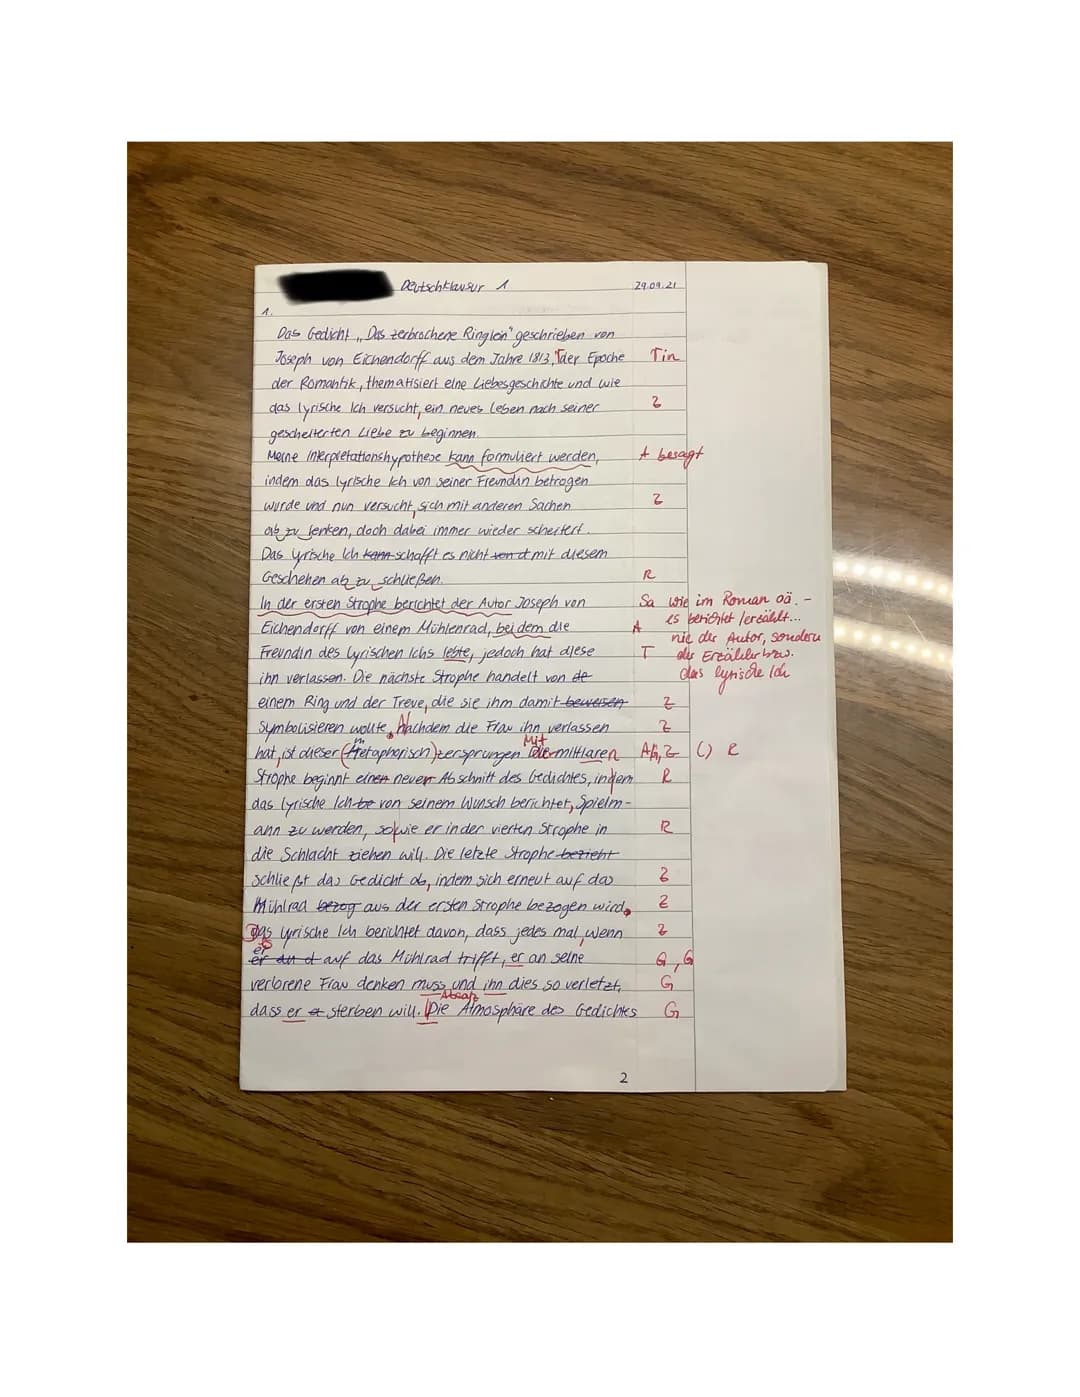 Deutschklausur 1 29.09.21
1.
Das Gedicht „Das zerbrochene Ringlein" geschrieben von
Joseph von Eichendorff aus dem Jahre 1813, der Epoche Γin
der Romantik, thematisiert eine Liebesgeschichte und wie
das lyrische Ich versucht, ein neues Leben nach seiner Z
gescheiterten Liebe zu beginnen.
Meine Interpretationshypothese kann formuliert werden, A besagt
indem das lyrische Ich von seiner Freundin betrogen
wurde und nun versucht, sich mit anderen Sachen Z
ab zu lenken, doch dabei immer wieder scheitert.
Das lyrische Ich kann schafft es nicht von d mit diesem
Geschehen ab zu schließen. R
In der ersten Strophe berichtet der Autor Joseph von Sa wie im Roman oä. -
es berichtet/erzählt...
Eichendorff von einem Mühlenrad, bei dem die A nie der Autor, sondern
Freundin des lyrischen Ichs lebte, jedoch hat diese T der Erzähler bzw.
das lyrische Ich
ihn verlassen. Die nächste Strophe handelt von de
einem Ring und der Treue, die sie ihm damit beweisen Z
Symbolisieren wollte. Nachdem die Frau ihn verlassen Z
hat, ist dieser (metaphorisch) zersprungen Mit die mittlaren AG, Z () R
Strophe beginnt einen neuen Abschnitt des Gedichtes, indem R
das lyrische Ich be von seinem Wunsch berichtet, Spielm-
ann zu werden, so wie er in der vierten Strophe in R
die Schlacht ziehen will. Die letzte Strophe bezieht
schließt das Gedicht ab, indem sich erneut auf das Z
Mühlrad bezog aus der ersten Strophe bezogen wird. Z
Das lyrische Ich berichtet davon, dass jedes mal, wenn Z
er
er an d auf das Mühlrad trifft, er an seine G, G
verlorene Frau denken muss und ihn dies so verletzt, G
Absatz
dass er sterben will. Die Atmosphäre des Gedichtes G
2